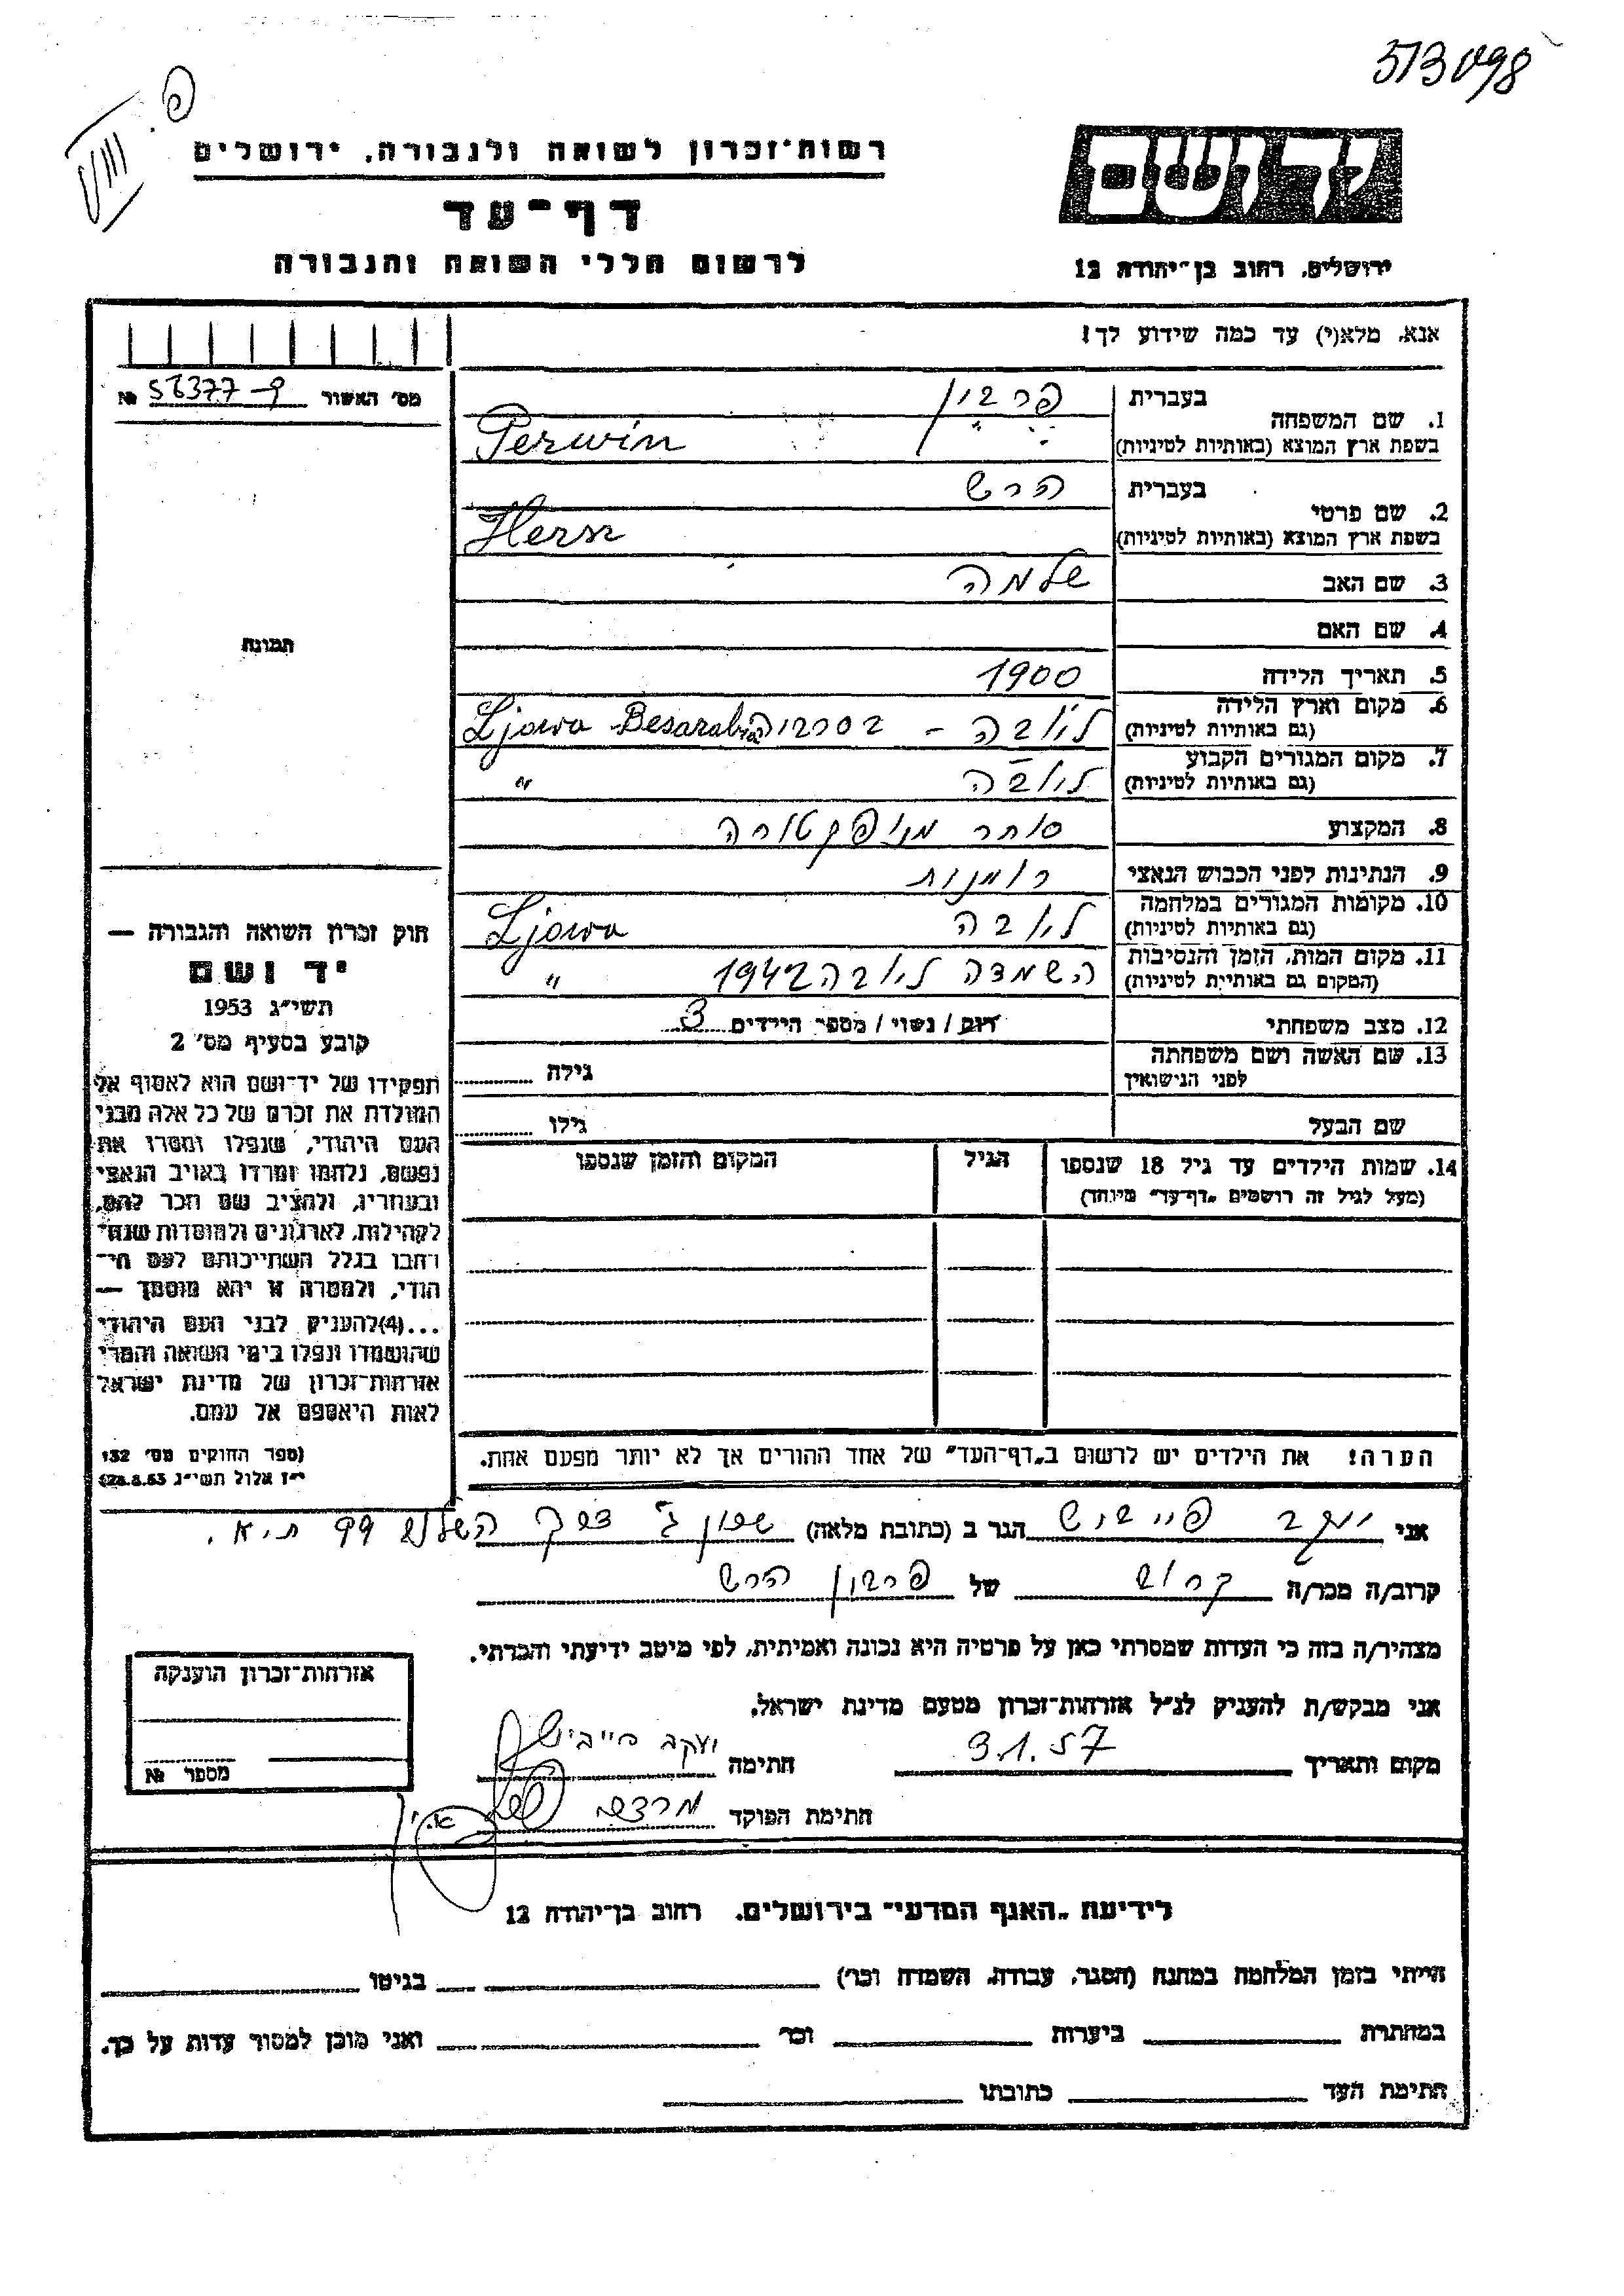 513098
VIII פ.
רשות־זכרון לשואה ולגבורה, ירושלים
דף־עד
לרשום חללי השואה והגבורה
יד ושם
ירושלים, רחוב בן־יהודה 12
אנא, מלא(י) עד כמה שידוע לך!
מס׳ האשור 56377-פ №
1. שם המשפחה
בעברית פרבין
בשפת ארץ המוצא (באותיות לטיניות) Perwin
2. שם פרטי
בעברית הרש
בשפת ארץ המוצא (באותיות לטיניות) Hersz
3. שם האב שלמה
4. שם האם
5. תאריך הלידה 1900
6. מקום וארץ הלידה
(גם באותיות לטיניות) ליובה - בסרביה Ljowa Besarabia
7. מקום המגורים הקבוע
(גם באותיות לטיניות) ליובה "
8. המקצוע סוחר מניפקטורה
9. הנתינות לפני הכבוש הנאצי רומנית
10. מקומות המגורים במלחמה
(גם באותיות לטיניות) ליובה Ljowa
11. מקום המות, הזמן והנסיבות
(המקום גם באותיית לטיניות) השמדה ליובה 1942 "
12. מצב משפחתי רווק / נשוי / מספר הילדים 3
13. שם האשה ושם משפחתה
לפני הנישואין גילה
שם הבעל גילו
14. שמות הילדים עד גיל 18 שנספו הגיל המקום והזמן שנספו
(מעל לגיל זה רושמים „דף־עד״ מיוחד)
תמונה
חוק זכרון השואה והגבורה —
יד ושם
תשי״ג 1953
קובע בסעיף מס׳ 2
תפקידו של יד־ושם הוא לאסוף אל
המולדת את זכרם של כל אלה מבני
העם היהודי, שנפלו ומסרו את
נפשם, נלחמו ומרדו באויב הנאצי
ובעוזריו, ולהציב שם וזכר להם,
לקהילות, לארגונים ולמוסדות שנח־
רבו בגלל השתייכותם לעם הי־
הודי, ולמטרה זו יהא מוסמך —
...(4)להעניק לבני העם היהודי
שהושמדו ונפלו בימי השואה והמרי
אזרחות־זכרון של מדינת ישראל
לאות היאספם אל עמם.
(ספר החוקים מס׳ 132
י״ז אלול תשי״ג 28.8.53)
הערה! את הילדים יש לרשום ב„דף־העד״ של אחד ההורים אך לא יותר מפעם אחת.
אני יעקב פייביש הגר ב (כתובת מלאה) שכון ג׳ 99 ת.א.
קרוב/ה מכר/ה קרוב של פרבין הרש
מצהיר/ה בזה כי העדות שמסרתי כאן על פרטיה היא נכונה ואמיתית, לפי מיטב ידיעתי והכרתי.
אני מבקש/ת להעניק לנ״ל אזרחות־זכרון מטעם מדינת ישראל.
מקום ותאריך 3.1.57 חתימה יעקב פייביש
חתימת הפוקד
אזרחות־זכרון הוענקה
מספר №
לידיעת „האגף המדעי״ בירושלים, רחוב בן־יהודה 12
הייתי בזמן המלחמה במחנה (הסגר, עבודה, השמדה וכר׳) בגיטו
במחתרת ביערות וכר׳ ואני מוכן למסור עדות על כך.
חתימת העד כתובתו